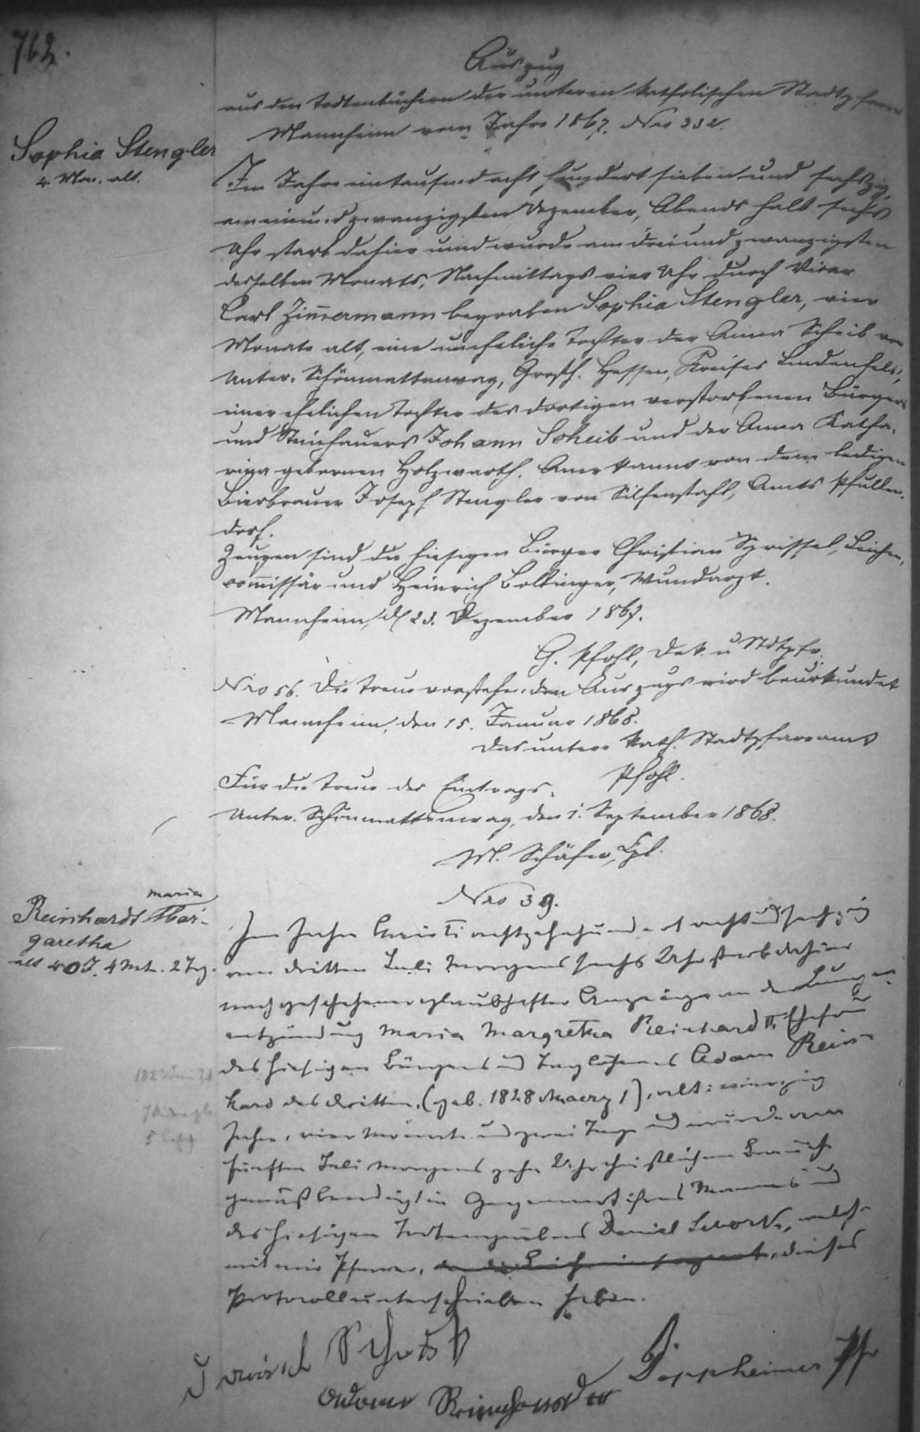 762.
Auszug
aus den Todtenbüchern der unteren katholischen Stadtpfarrei
Mannheim vom Jahre 1867. Nro 332.
Sophia Stengler
4 Mon. alt.
Im Jahre eintausend acht hundert sieben und sechszig,
am einundzwanzigsten Dezember, Abends halb sechs
Uhr starb dahier und wurde am dreiundzwanzigsten
desselben Monats, Nachmittags vier Uhr durch Vicar
Carl Zimmermann begraben Sophia Stengler, vier
Monate alt, eine uneheliche Tochter der Anna Scheib von
Unter-Schönmattenwag, Großh. Hessen, Kreises Lindenfels,
einer ehelichen Tochter des dortigen verstorbenen Bürgers
und Steinhauers Johann Scheib und der Anna Katha-
rina geborenen Holzwarth. Anerkannt von dem ledigen
Bierbrauer Joseph Stengler von Amts Pfullen-
dorf.
Zeugen sind die hiesigen Bürger Christian Leichen-
commissär und Heinrich Wundarzt.
Mannheim, d 23. Dezember 1867.
G. Pfohl, Dek. u Stdtpfr.
Nro 56. Die Treue vorstehenden Auszugs wird beurkundet
Mannheim, den 15. Januar 1868.
Das untere kath. Stadtpfarramt
Pfohl.
Für die Treue des Eintrags.
Unter-Schönmattenwag, den 1. September 1868.
M. Schäfer,
Nro 39.
Reinhardt Maria Mar-
garetha
alt 40 J. 4 Mt. 2 Tg.
Im Jahre Christi achtzehnhundert acht und sechzig
am dritten Juli Morgens sechs Uhr starb dahier
nach geschehener glaubhafter Anzeige an der Lungen-
entzündung Maria Margretha Reinhard Ehefrau
des hiesigen Bürgers und Taglöhners Adam Rein-
hard des dritten, (geb. 1828 Maerz 1), alt: vierzig
Jahre, vier Monate und zwei Tage und wurde am
fünften Juli Morgens zehn Uhr christlichem Brauche
gemäß beerdigt in Gegenwart ihres Mannes und
des hiesigen Todtengräbers Daniel welche
mit mir Pfarrer, dieses
Protocoll unterschrieben haben.
Adam Reinhard
Pfr